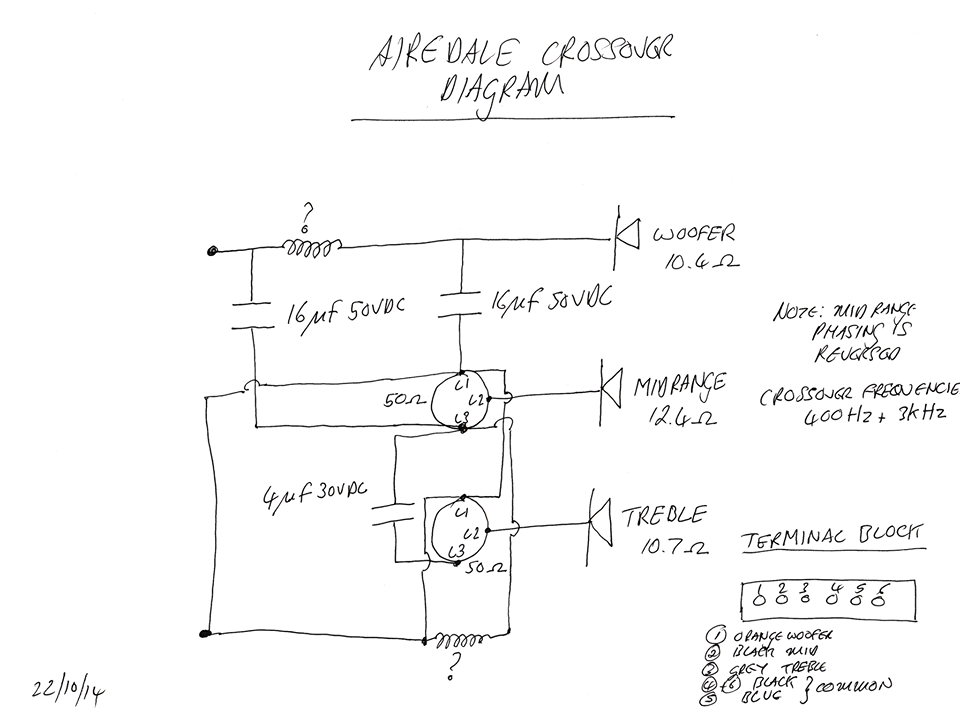 AIREDALE CROSSOVER
DIAGRAM
?
WOOFER
10.4Ω
16µf 50VDC
16µf 50VDC
NOTE: MID RANGE
PHASING IS
REVERSED
L1
50Ω
L2
L3
MIDRANGE
12.4Ω
CROSSOVER FREQUENCIE
400HZ + 3KHZ
4µf 30VDC
L1
L2
L3
50Ω
TREBLE
10.7Ω
TERMINAL BLOCK
1 2 3 4 5 6
① ORANGE WOOFER
② BLACK MID
③ GREY TREBLE
④ - ⑥ BLACK } COMMON
⑤ BLUE
?
22/10/14